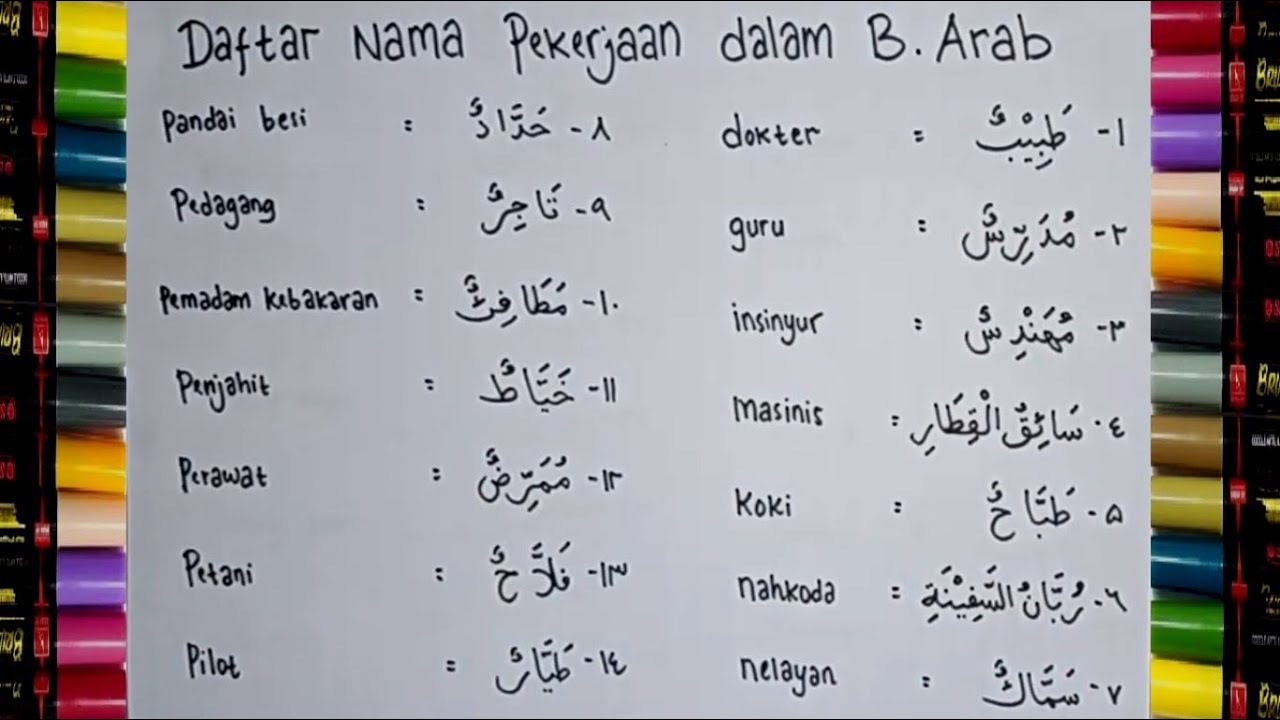 Daftar Nama Pekerjaan dalam B. Arab
١- طَبِيْبٌ : dokter
٢- مُدَرِّسٌ : guru
٣- مُهَنْدِسٌ : insinyur
٤- سَائِقُ الْقِطَارِ : Masinis
۵- طَبَّاخٌ : Koki
٦- رُبَّانُ السَّفِيْنَةِ : nahkoda
٧- سَمَّاكٌ : nelayan
٨- حَدَّادٌ : Pandai besi
٩- تَاجِرٌ : Pedagang
١٠- مَطَافِئٌ : Pemadam kebakaran
١١- خَيَّاطٌ : Penjahit
١٢- مُمَرِّضٌ : Perawat
١٣- فَلاَّحٌ : Petani
١٤- طَيَّارٌ : Pilot